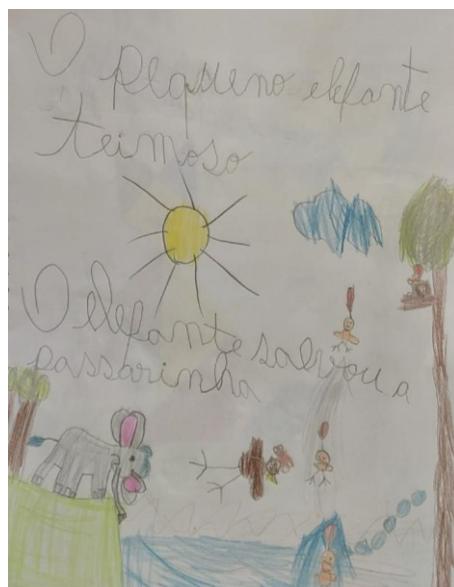 O pequeno elefante
teimoso
O elefante salvou a
passarinha